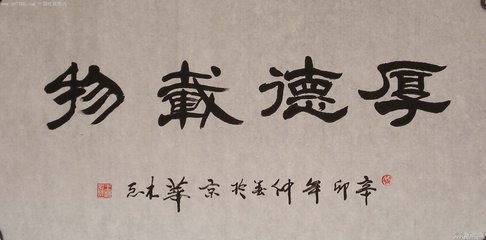 厚德載物
辛卯年仲春於京華木石